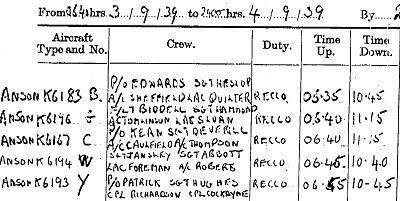 From hrs. 3 / 9 / 39 to 2400 hrs. 4 / 9 / 39 By
Aircraft Type and No. Crew. Duty. Time Up. Time Down.
P/O EDWARDS SGT HESLOP
ANSON K6183 B. A/C SHEFFIELD LAC QUINTER RECCO 05.35 10.45
SGT HAMMOND
ANSON K6196 RECCO 05.40 11.15
P/O KEAN SGT DEVERILL
ANSON K6167 C A/C CAULFIELD A/C THOMPSON RECCO 06.40 11.15
SGT JANSLEY SGT ABBOTT
ANSON K6194 W LAC FOREMAN A/C ROBERTS RECCO 06.45 10.40
ANSON K6193 Y P/O PATRICK SGT HUGHES RECCO 06.55 10-45
CPL RICHARDSON CPL COCKAYNE